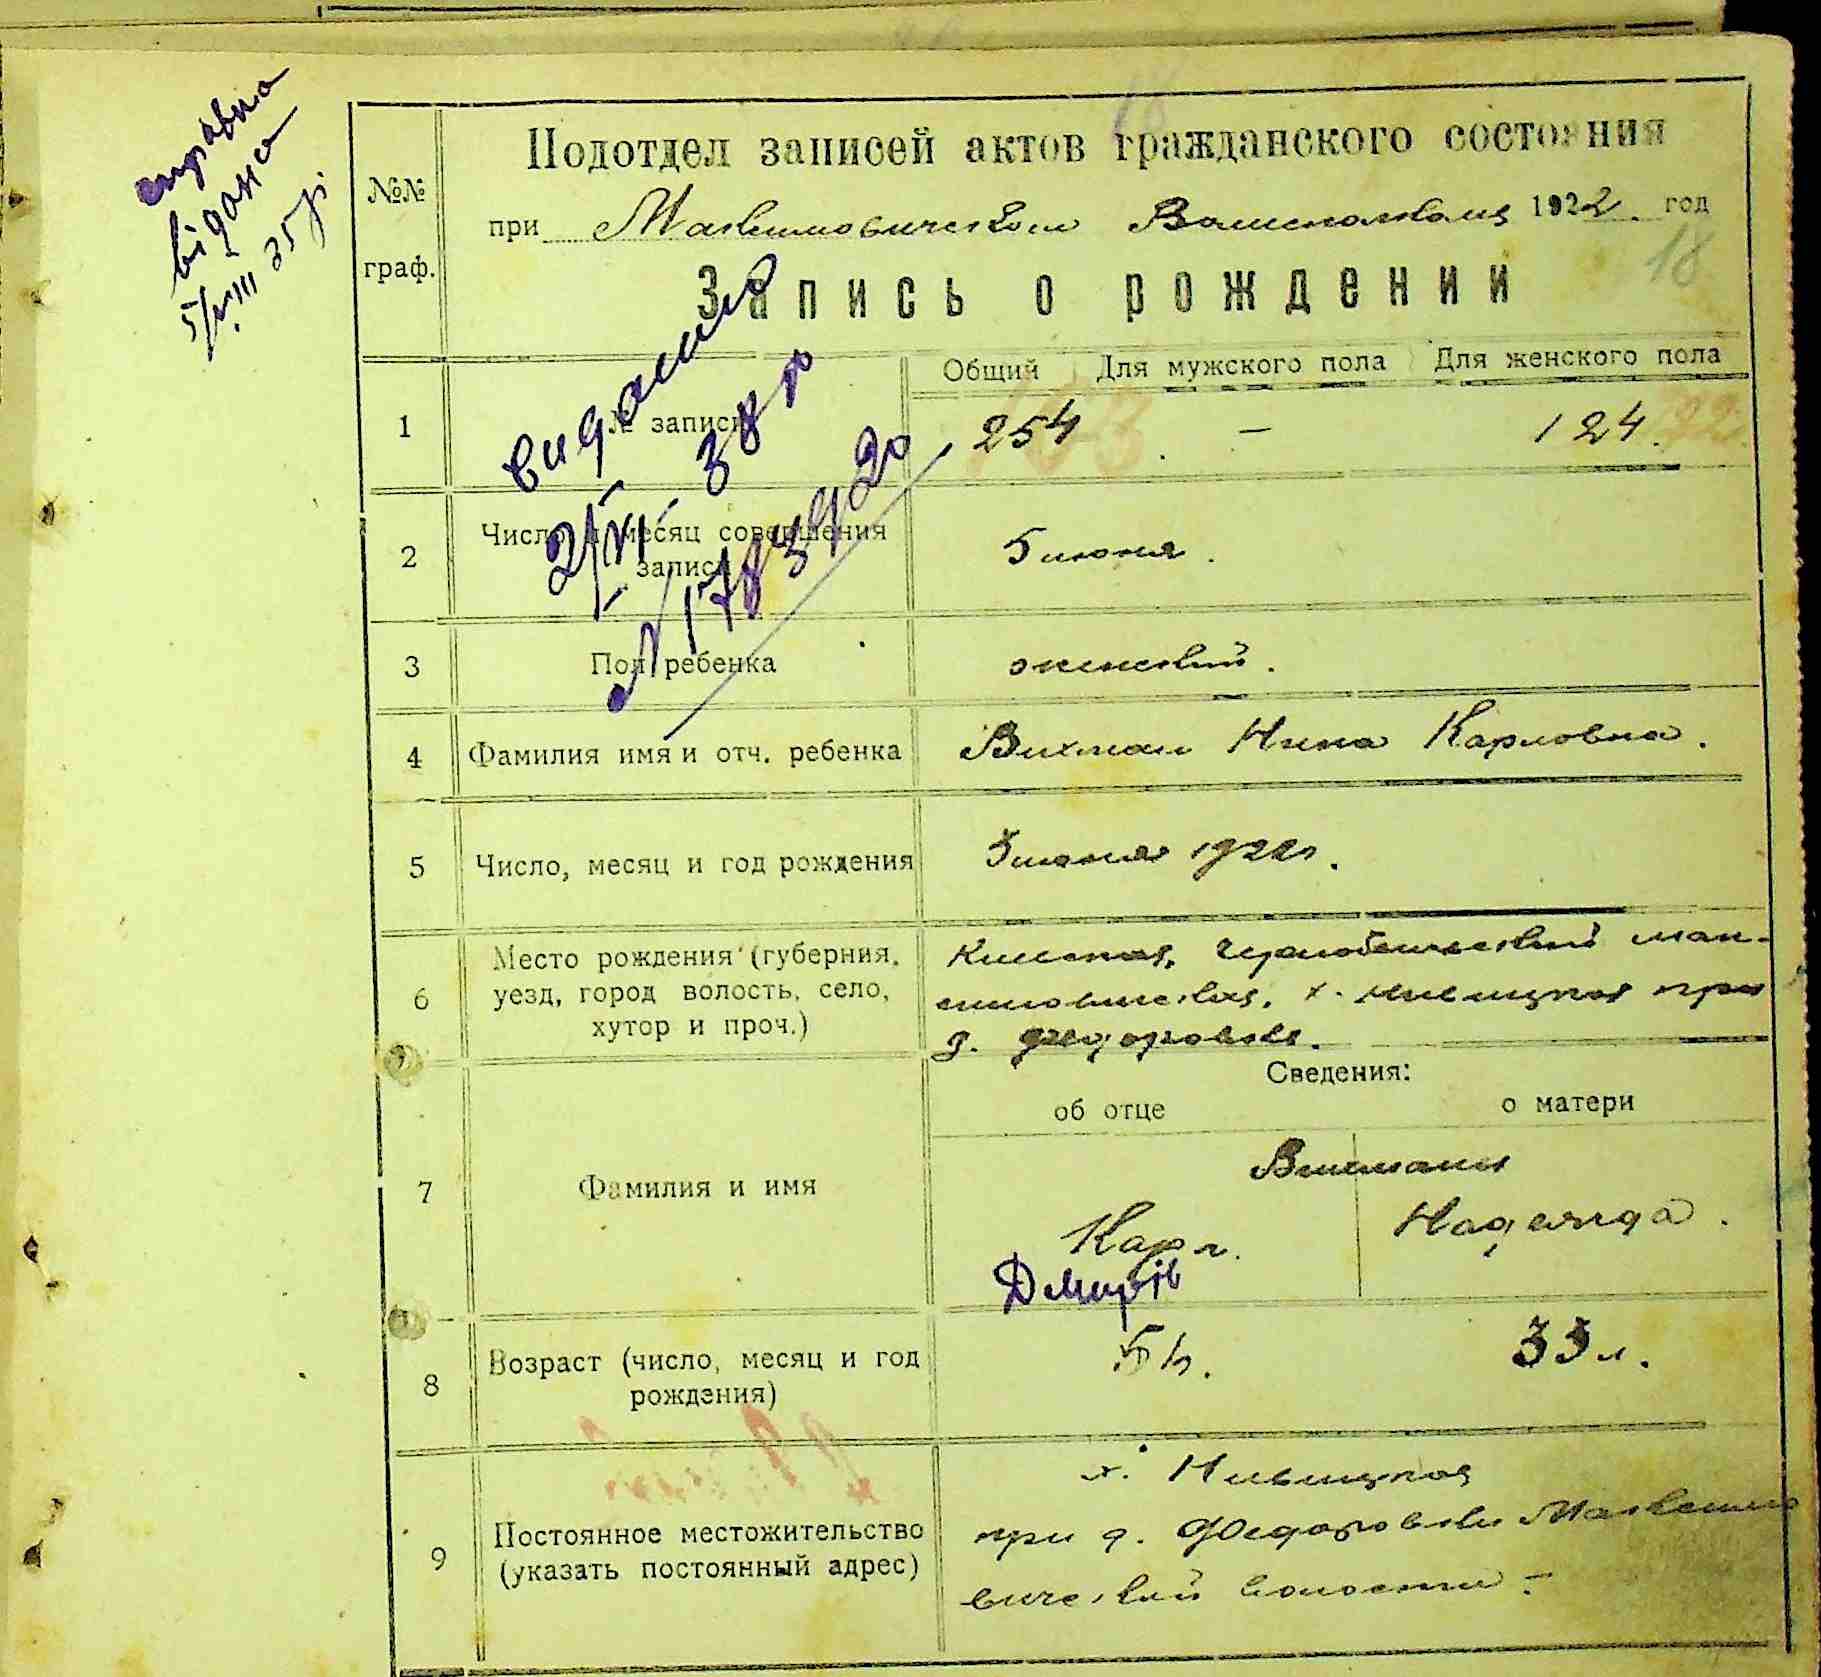 справка
видана
5/VIII 35 р.
Подотдел записей актов гражданского состояния
№№
граф.
при Максимовическом Волисполкоме 1922 год
18
Запись о рождении
Общий Для мужского пола Для женского пола
1 № записи 254 - 124.
2 Число и месяц совершения
записи
5 июня.
3 Пол ребенка женский.
4 Фамилия имя и отч. ребенка Вихман Нина Карловна.
5 Число, месяц и год рождения 3 июня 1922 г.
6 Место рождения (губерния,
уезд, город волость, село,
хутор и проч.)
Киевская, Чернобыльский Мак-
симовическая, х. Нивицкая при
д. Федоровке.
Сведения:
об отце о матери
7 Фамилия и имя
Вихманы
Карл. Надежда.
8 Возраст (число, месяц и год
рождения)
33 л.
9 Постоянное местожительство
(указать постоянный адрес)
х. Нивицкая
при д. Федоровки Максимо
вической волости -
видании
2/VI 38 р
№ 178